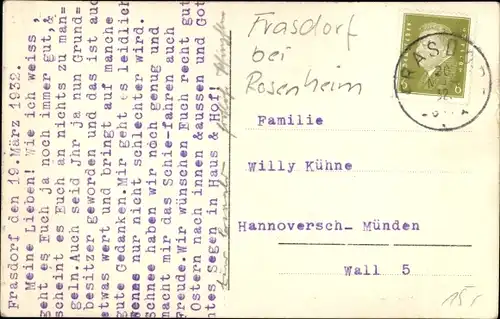 Frasdorf den 19.März 1932.
Meine Lieben! Wie ich weiss ,
geht es Euch ja noch immer gut,&
scheint es Euch an nichts zu man-
geln.Auch seid Jhr ja nun Grund-
besitzer geworden und das ist auc
etwas wert und bringt auf manche
gute Gedanken.Mir geht es leidlich
wenns nur nicht schlechter wird.
Schnee haben wir noch genug und
macht mir das Schie-fahren auch
Freude.Wir wünschen Euch recht gut
Ostern nach innen &aussen und Got
tes Segen in Haus & Hof!
Frasdorf
bei
Rosenheim
RASDORF
20
32
6
Familie
Willy Kühne
Hannoversch-Münden
Wall 5
15,-